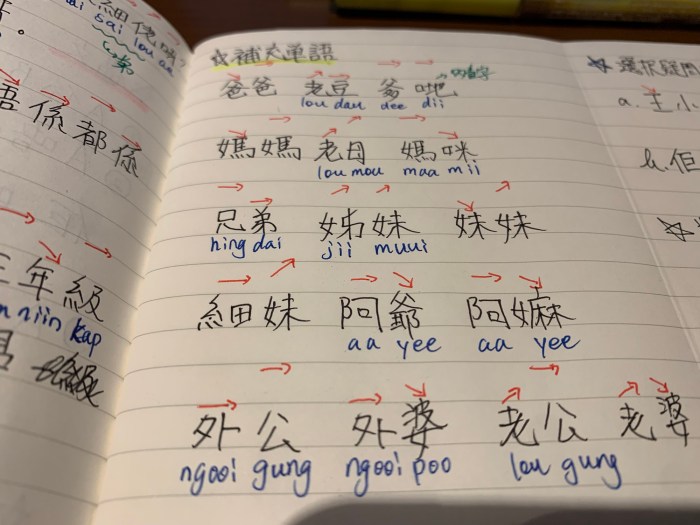 細佬
sai lou aa
弟
係都係
三年級
niin kap
☆補充単語
爸爸 老豆 爹哋
lou dau dee dii
媽媽 老母 媽咪
lou mou maa mii
兄弟 姊妹 妹妹
hing dai jii muui
細妹 阿爺 阿嫲
aa yee aa yee
外公 外婆 老公 老婆
ngooi gung ngooi poo lou gung
☆ 選択疑問
a. 王小
b. 佢